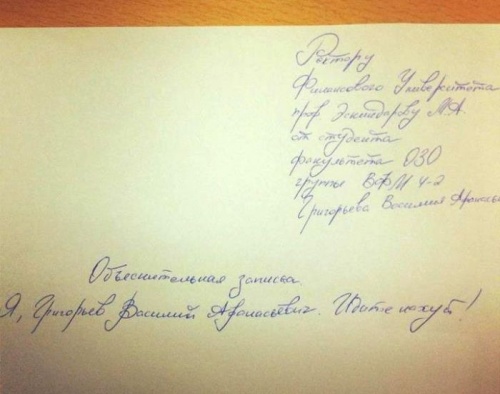 Ректору
Финансового Университета
проф Эскиндарову М.А.
от студента
факультета ОЗО
группы ВФМ 4-2
Григорьева Василия Афанасье
Объеснительная записка
Я, Григорьев Василий Афанасьевич. Идите нахуй!